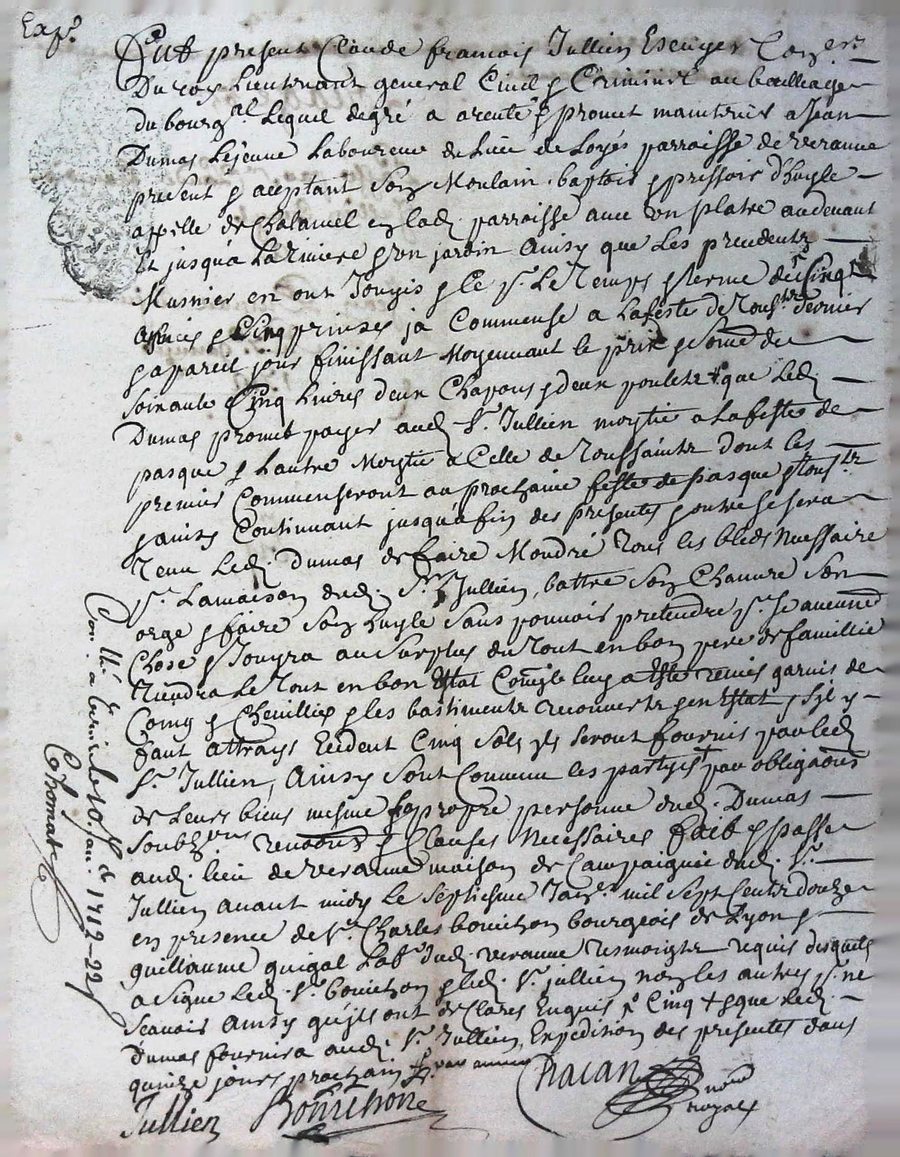 Exp.
Fut present Claude francois Jullien Escuyer Con.er
Du roy Lieutenant general Civil & Criminel au bailliage
du bourg.al Lequel de gré a arenté & promet maintenir a Jean
Dumas Lejeune Laboureur du Lieu de Loyes parroisse de veranne
present & aceptant son Moulain baptoir & pressoir d'huyle
appelle de Chalamel en lad. parroisse avec un platre audevant
Et jusqu'à La riviere & son jardin Ainsy que Les precedents
Musnier en ont Jouyis & Ce p.r Le Temps & terme de Cinq
Années & Cinq prinses ja Commense a Lafeste de Touss.ts dernier
& apareil jour finissant Moyennant le prix & Somme de
Soixante Cinq Livres deux Chapons & deux poulets que Led.
Dumas promet payer aud. S.r Jullien moytié a Lafeste de
pasque & Lautre Moytié a Celle de Toussaints dont les
premier Commenseront au prochaine feste de pasque & Touss.ts
& ainsy Continuant jusqu'a fin des presentes & outre se sera
Tenu Led. Dumas de faire Moudre Tous les bleds Necessaire
p.r Lamaison dud. S.r Jullien, battre Son Chanvre Son
orge & faire Son huyle Sans pouvoir pretendre p.r Ce aucune
Chose & Jouyra au Surplus du Tout en bon pere de famillie
Tiendra Le Tout en bon Estat Comme le luy a Esté remis garnis de
& les bastiments recouverts & en Estat & Sil y
faut attrays Exedent Cinq Sols ils Seront fournis par led.
S.r Jullien, Ainsy Sont Convenu les partyes par obligaons
de Leurs biens mesme propre personne dud. Dumas
Soubz.ons renons & Clauses Necessaires fait & passe
aud. lieu de veranne maison de Campaignie dud. S.r
Jullien avant midy le Septiesme Janv. mil Sept Cents douze
en presence de S.r Charles bouichon bourgeois de Lyon &
guillaume quigal Lab.r dud. veranne Tesmoights requis desquels
a Signe Led. S.r bouichon & led. S.r jullien non les autres p.r ne
Scavoir Ainsy qu'ils ont declares Enquis Cinq & que Led.
Dumas fournira aud. S.r Jullien Expédition des presentes dans
quinze jours prochain par annee
Jullien Bouichon Chacan
no.re
royal
Con. a le 10 Jan. 1712-22
Thomas